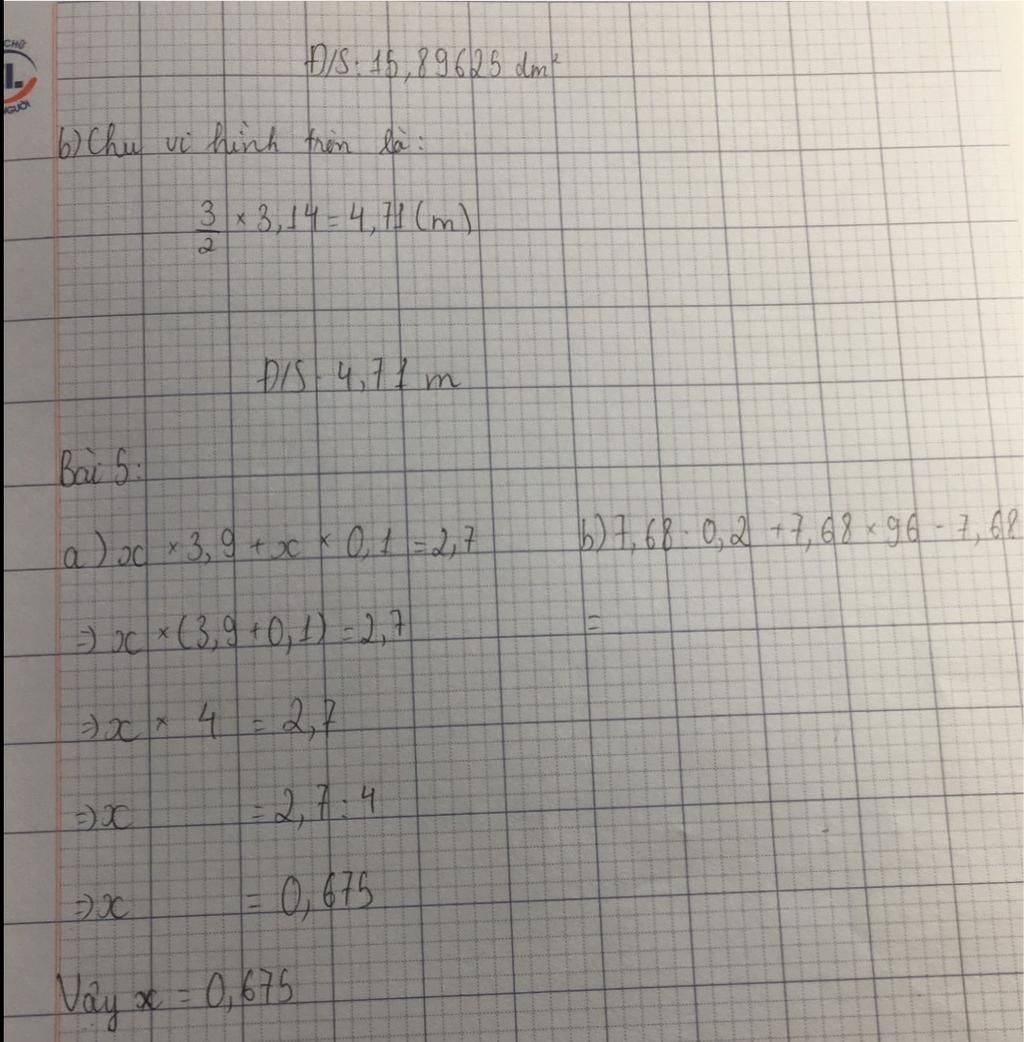 CHỮ
L.
NGƯỜI
Đ/S: 15,89625 dm²
b) Chu vi hình tròn là:
3/2 × 3,14 = 4,71 (m)
Đ/S: 4,71 m
Bài 5:
a) x × 3,9 + x × 0,1 = 2,7
⇒ x × (3,9 + 0,1) = 2,7
⇒ x × 4 = 2,7
⇒ x = 2,7 : 4
⇒ x = 0,675
Vậy x = 0,675
b) 7,68 : 0,2 + 7,68 × 96 - 7,68
=